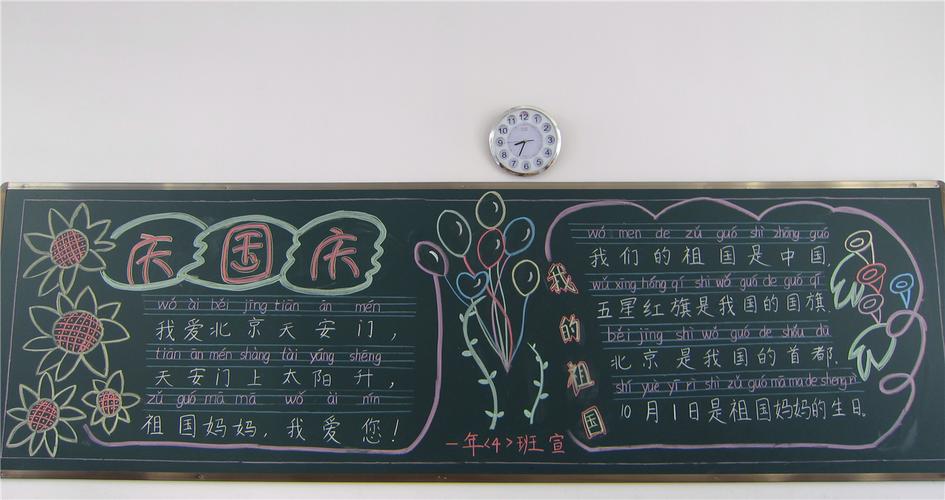 庆国庆
wǒ ài běi jīng tiān ān mén
我爱北京天安门，
tiān ān mén shàng tài yáng shēng
天安门上太阳升，
zǔ guó mā mā wǒ ài nín
祖国妈妈，我爱您！
我的祖国
wǒ men de zǔ guó shì zhōng guó
我们的祖国是中国.
wǔ xīng hóng qí shì wǒ guó de guó qí
五星红旗是我国的国旗.
běi jīng shì wǒ guó de shǒu dū
北京是我国的首都.
shí yuè yī rì shì zǔ guó mā ma de shēng rì
10月1日是祖国妈妈的生日.
一年<4>班宣
12 1 2 3 4 5 6 7 8 9 10 11